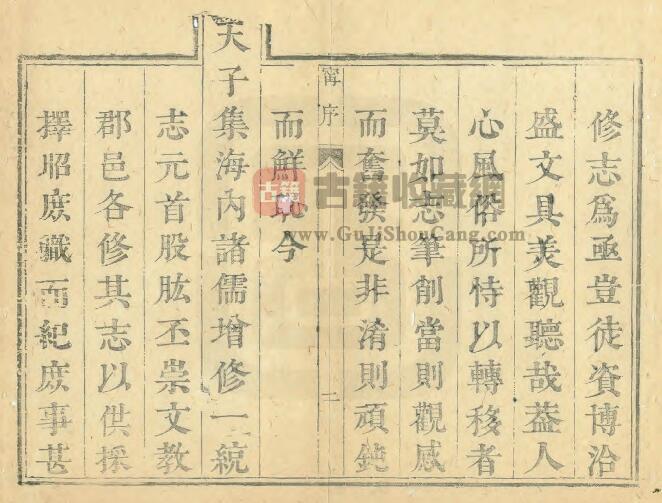 修志爲亟豈徒資博洽
盛文具美觀聽哉葢人
心風俗所恃以轉移者
莫如志筆削當則觀感
而奮發是非淆則頑鈍
而鮮恥今
甯序
二
天子集海內諸儒增修一統
志元首股肱丕崇文教
郡邑各修其志以供採
擇昭庶職而紀庶事甚
古籍
古籍收藏網
www.GuJiShouCang.com